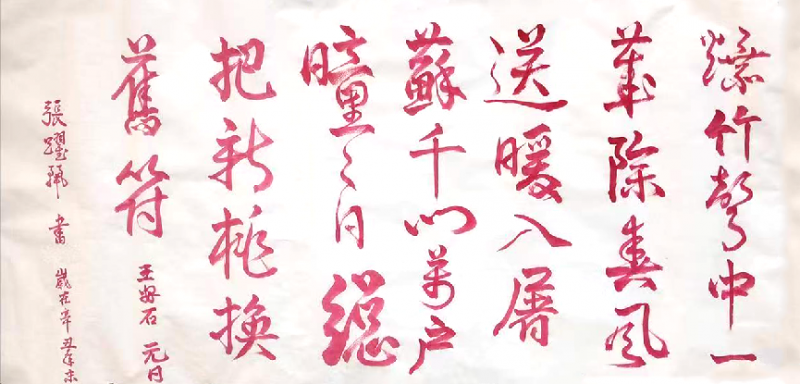 爆竹聲中一
歲除春風
送暖入屠
蘇千門萬戶
曈々日總
把新桃換
舊符
王安石 元日
張躍 書 歲在辛丑年末